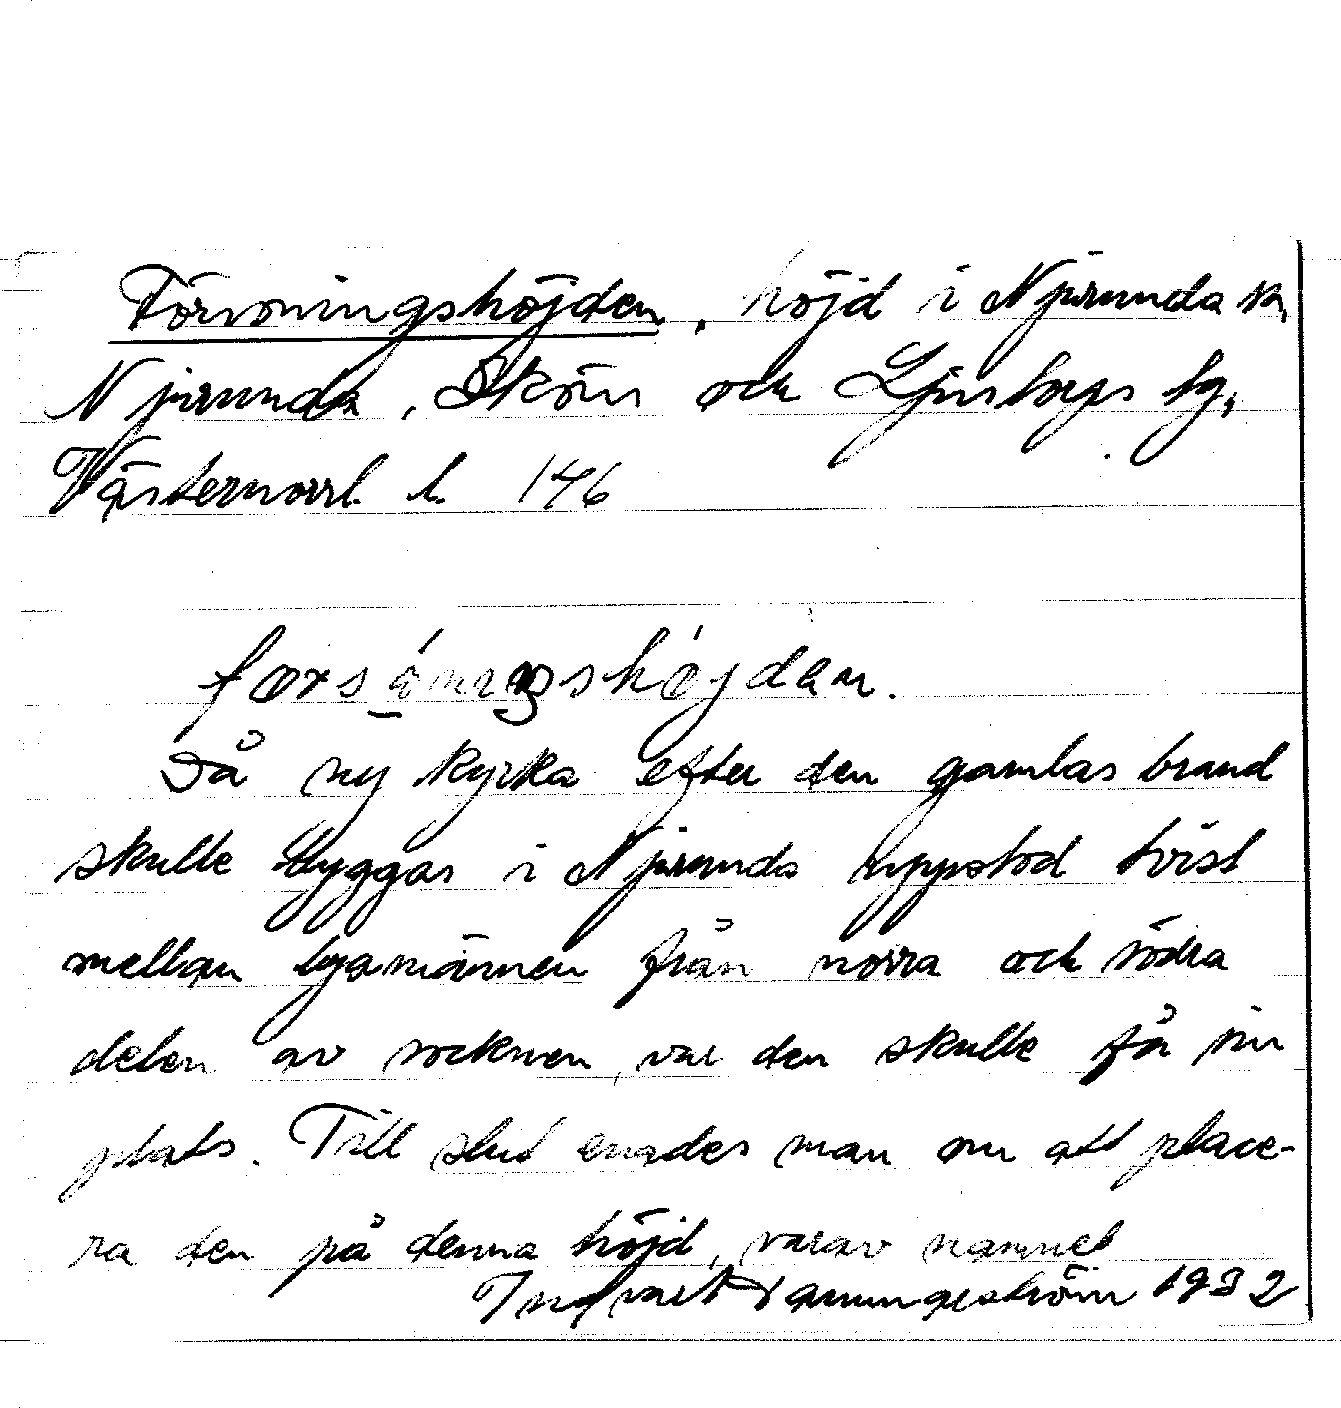 Försoningshöjden, höjd i Njurunda sn,
Njurunda, Sköns och Ljustorps tg,
Västernorrl. l. 146
forsöningshöjdan.
Då ny kyrka efter den gamlas brand
skulle byggas i Njurunda uppstod tvist
mellan byamännen från norra och södra
delen av socknen, var den skulle få sin
plats. Till slut enades man om att place-
ra den på denna höjd, varav namnet
1932